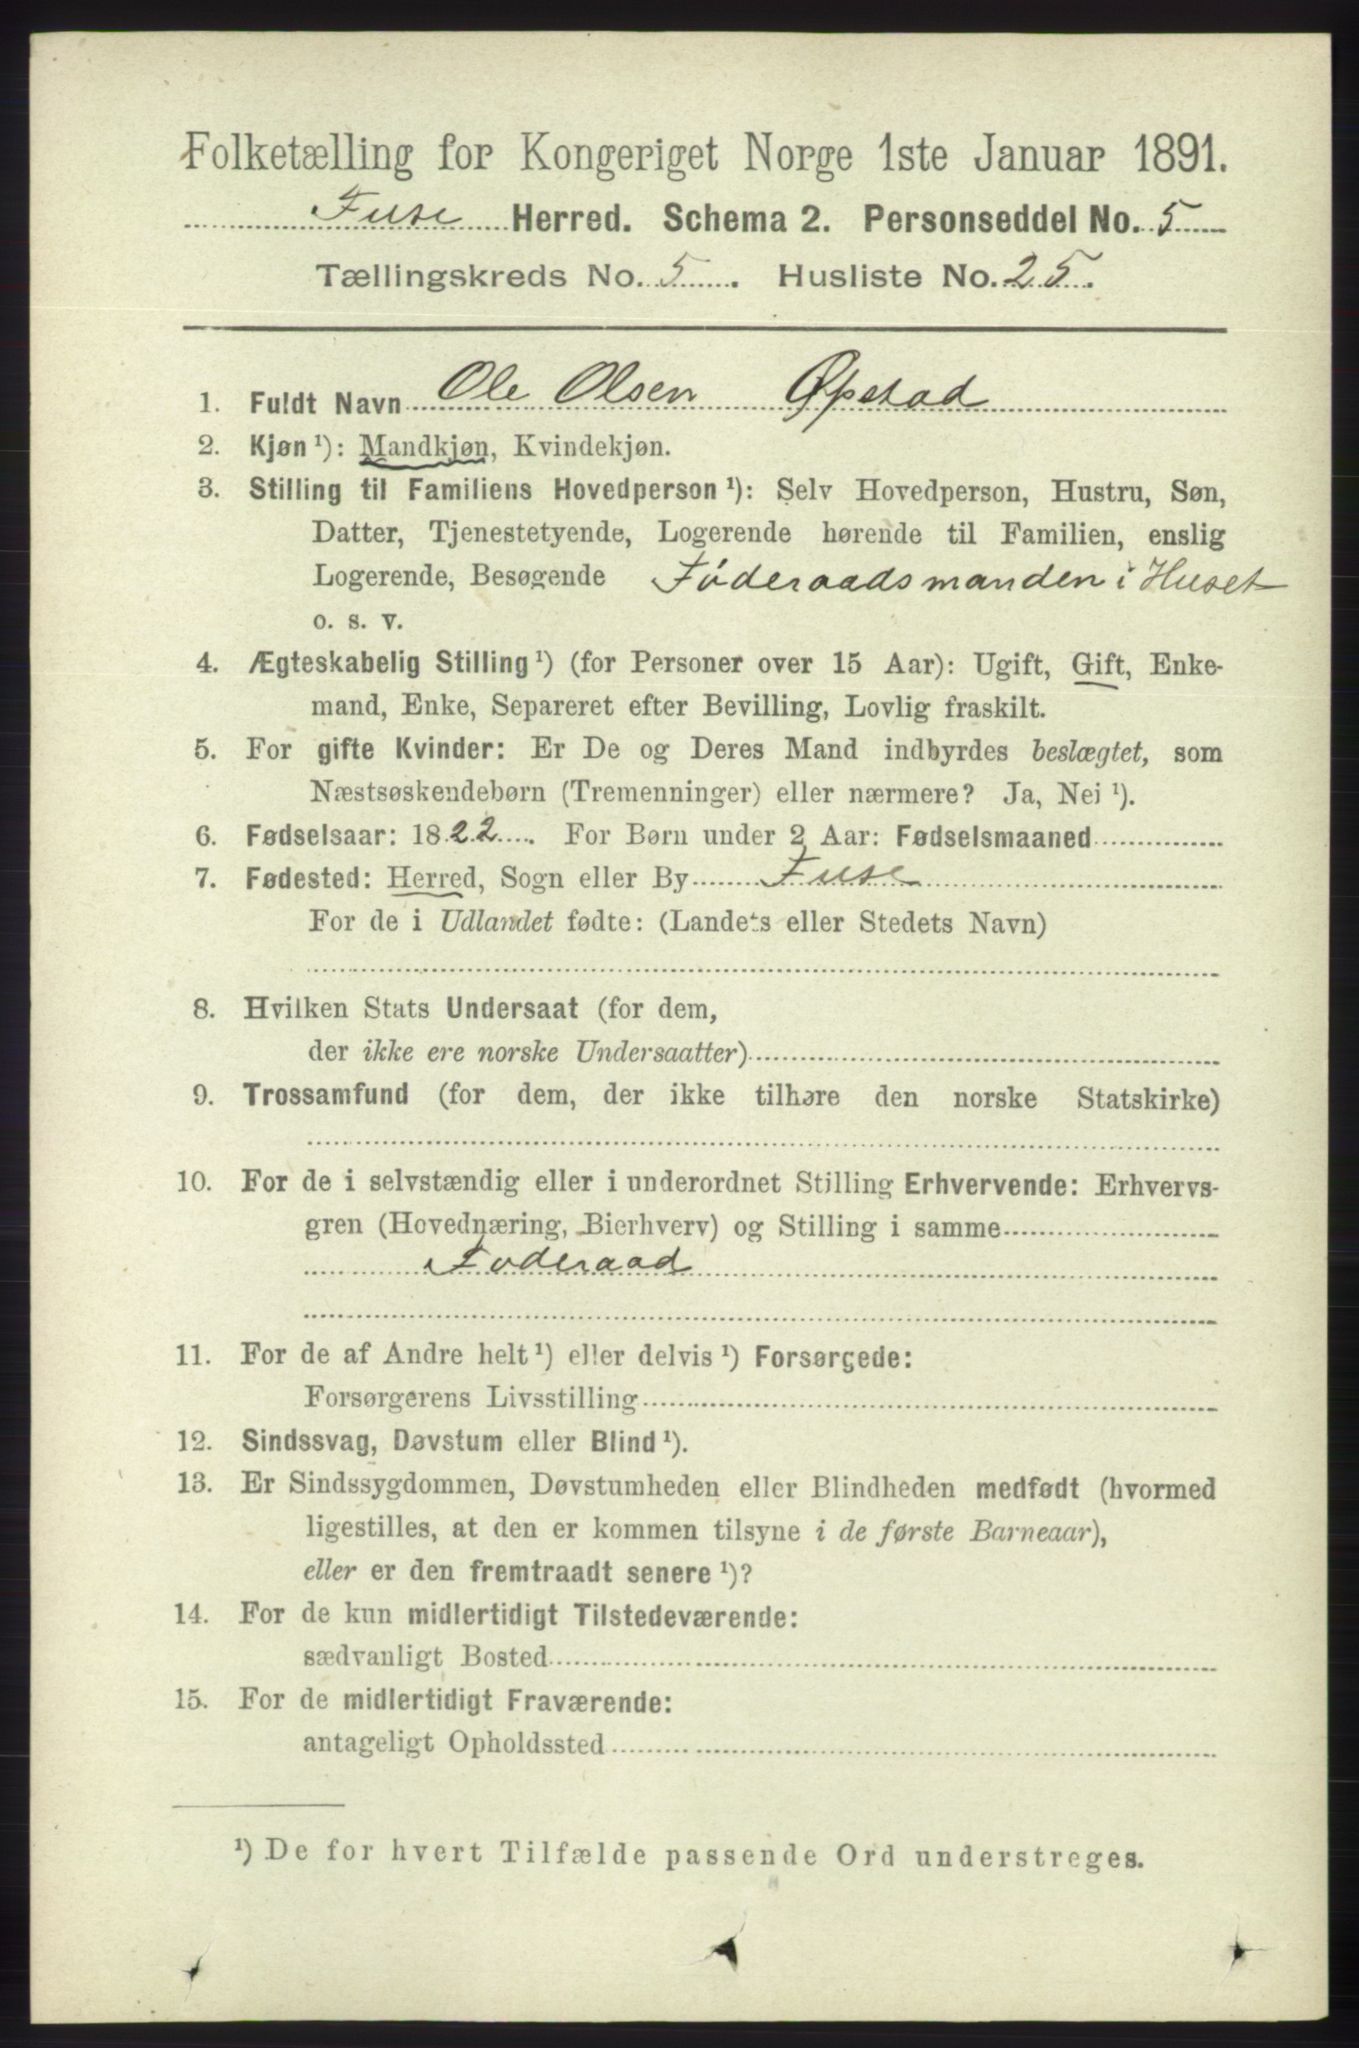 Folketælling for Kongeriget Norge 1ste Januar 1891.
Fuse Herred. Schema 2. Personseddel No. 5
Tællingskreds No. 5. Husliste No. 25.
1. Fuldt Navn Ole Olsen Øpstad
2. Kjøn ¹): Mandkjøn, Kvindekjøn.
3. Stilling til Familiens Hovedperson ¹): Selv Hovedperson, Hustru, Søn,
Datter, Tjenestetyende, Logerende hørende til Familien, enslig
Logerende, Besøgende Föderaadsmanden i Huset
o. s. v.
4. Ægteskabelig Stilling ¹) (for Personer over 15 Aar): Ugift, Gift, Enke-
mand, Enke, Separeret efter Bevilling, Lovlig fraskilt.
5. For gifte Kvinder: Er De og Deres Mand indbyrdes beslægtet, som
Næstsøskendebørn (Tremenninger) eller nærmere? Ja, Nei ¹).
6. Fødselsaar: 1822. For Børn under 2 Aar: Fødselsmaaned
7. Fødested: Herred, Sogn eller By Fuse
For de i Udlandet fødte: (Landets eller Stedets Navn)
8. Hvilken Stats Undersaat (for dem,
der ikke ere norske Undersaatter)
9. Trossamfund (for dem, der ikke tilhøre den norske Statskirke)
10. For de i selvstændig eller i underordnet Stilling Erhvervende: Erhvervs-
gren (Hovednæring, Bierhverv) og Stilling i samme
Foderaad
11. For de af Andre helt ¹) eller delvis ¹) Forsørgede:
Forsørgerens Livsstilling
12. Sindssvag, Døvstum eller Blind ¹).
13. Er Sindssygdommen, Døvstumheden eller Blindheden medfødt (hvormed
ligestilles, at den er kommen tilsyne i de første Barneaar),
eller er den fremtraadt senere ¹)?
14. For de kun midlertidigt Tilstedeværende:
sædvanligt Bosted
15. For de midlertidigt Fraværende:
antageligt Opholdssted
¹) De for hvert Tilfælde passende Ord understreges.